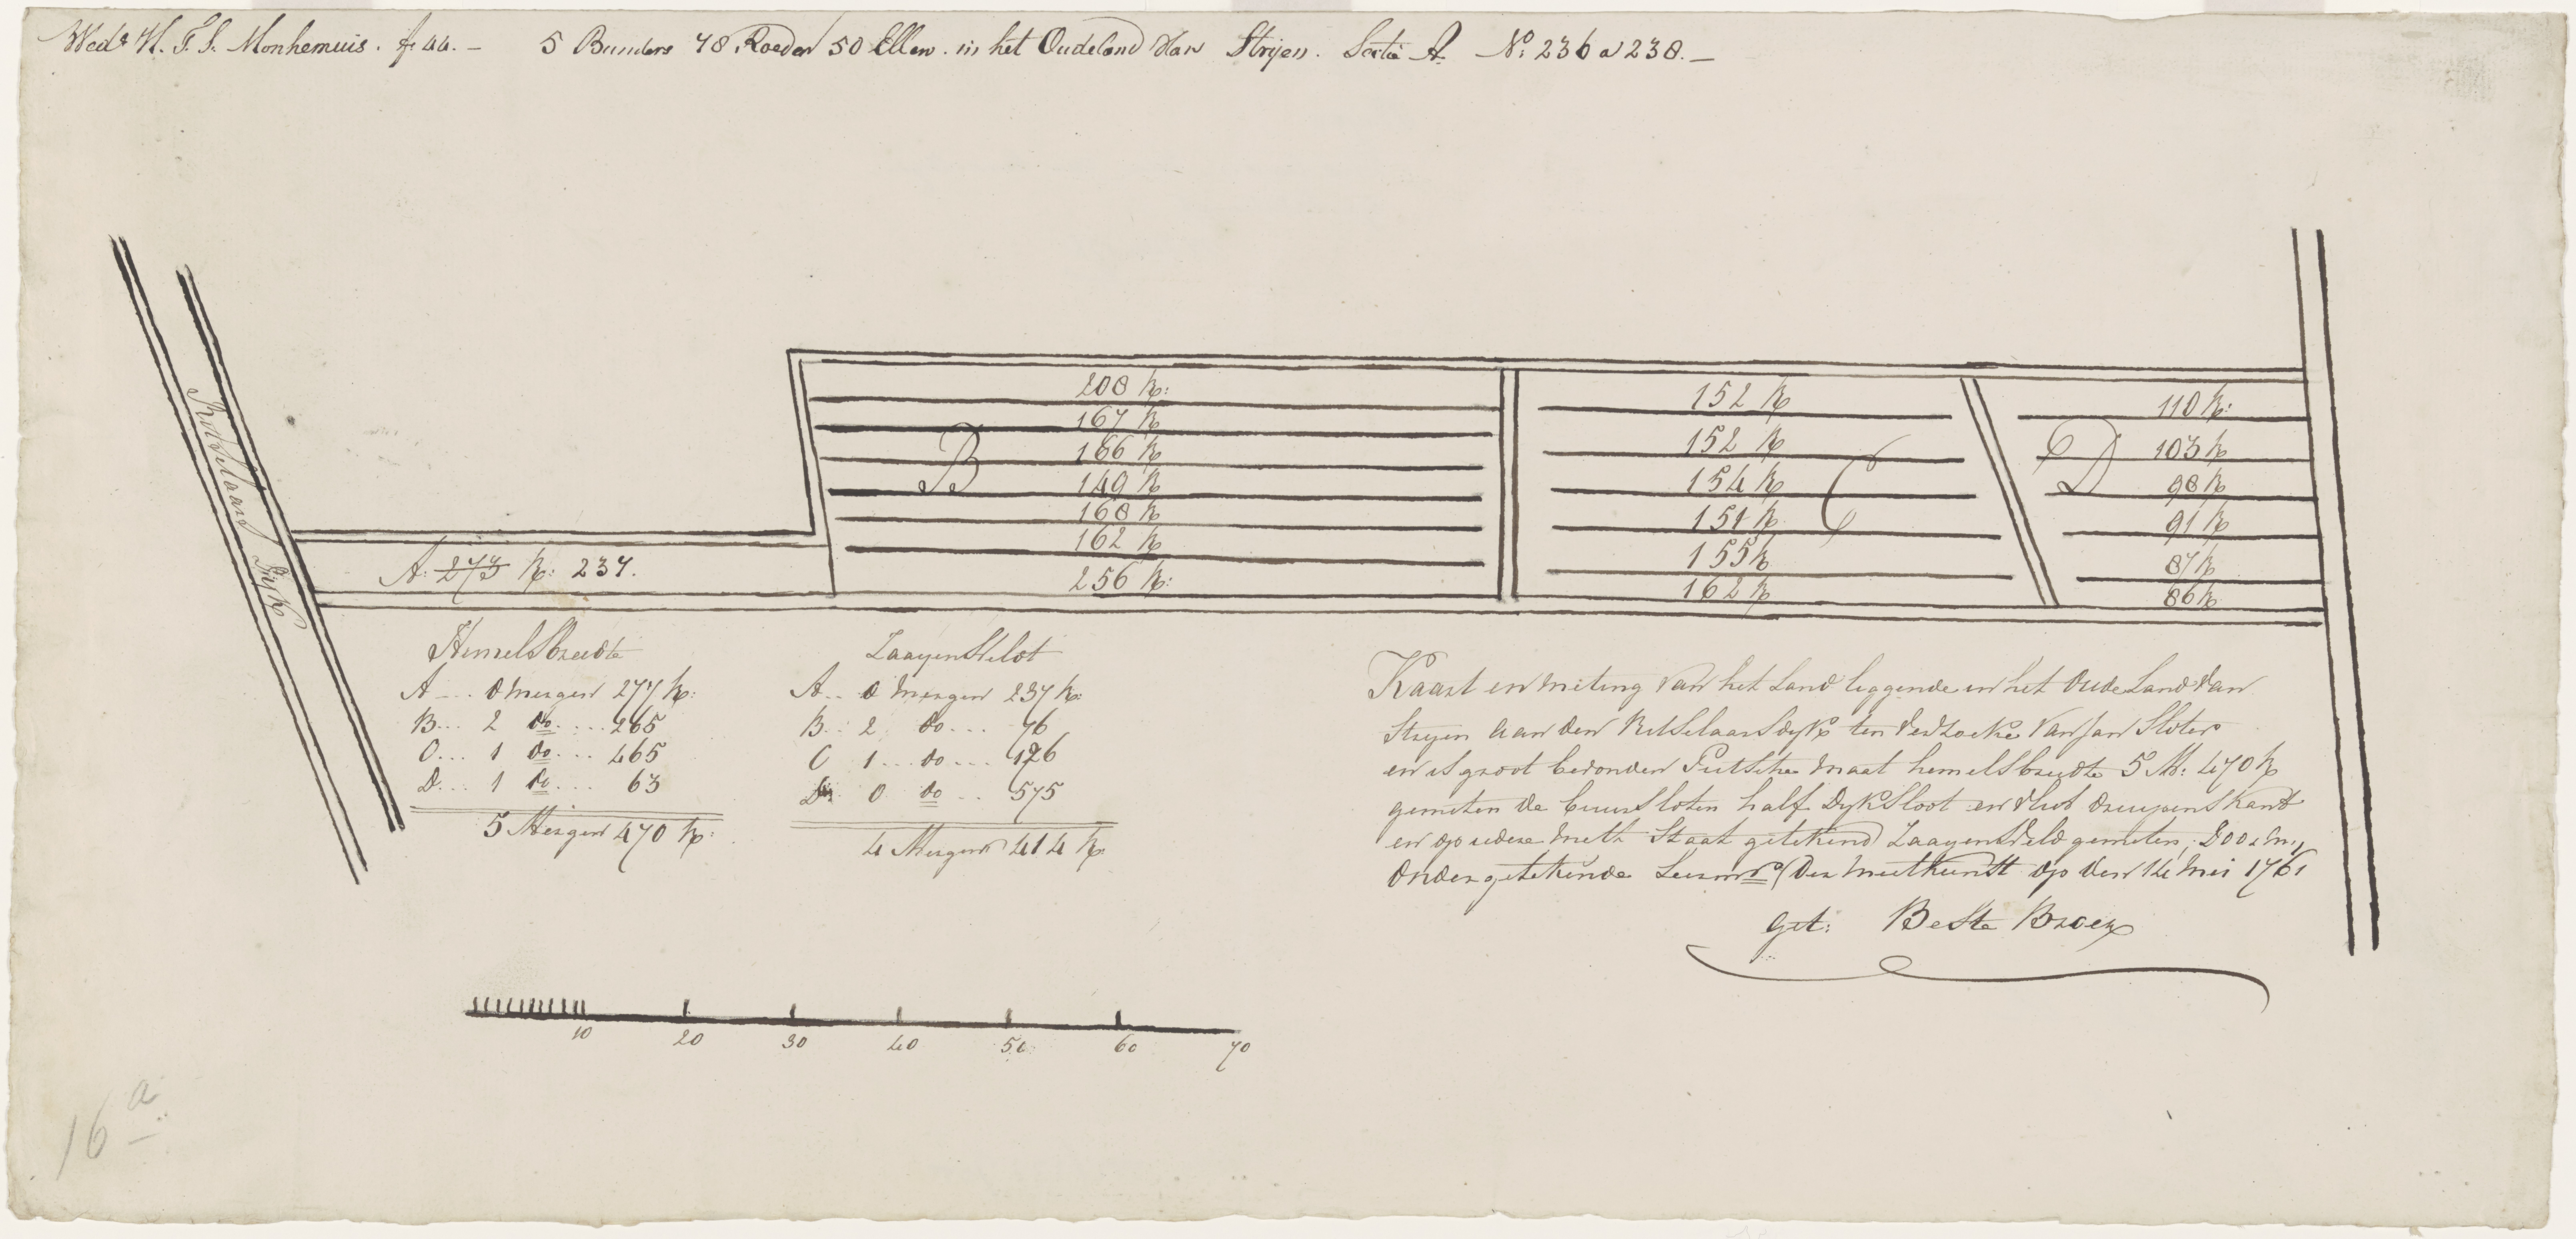 Wed.e H. F. S. Monhemuis. f 44. — 5 Bunders 78 Roeden 50 Ellen. in het Oudeland van Strijen. Sectie A. No: 236 a 238. —
208 R:
167 R
166 R
149 R
168 R
162 R
256 R:
B
152 R
152 R
154 R
151 R
155 R
162 R
C
110 R:
103 R
98 R
91 R
87 R
86 R
D
A: 273 R: 237.
Dijk
Hemelsbreedte
A ... 0 mergen 277 R:
B ... 2 do ... 265
C ... 1 do ... 465
D ... 1 do ... 63
5 Mergen 470 R:
Zaayenvelot
A .. 0 mergen 237 R:
B .. 2 do ... 76
C 1 ... do ... 126
D. 0 do .. 575
4 Mergen 414 R:
Kaart en meting van het Land leggende in het Oude Land van
Stryen aan den Ritselaarsdyk ten verzoeke van Jan Sloter
en is groot bevonden Putsche maat hemelsbreedte 5 M: 470 R
gemeten de buursloten half dyksloot en vliet druypenskant
en op iedere meth Staat getekend Zaayenveld gemeten, Door my
Ondergetekende Leermr der meetkunst op den 14 Mei 1761
get: Beste Broer
10 20 30 40 50 60 70
16 a.